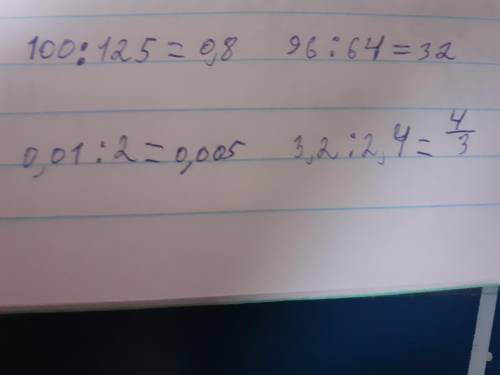 100:125=0,8 96:64=32
0,01:2=0,005 3,2:2,4=4/3